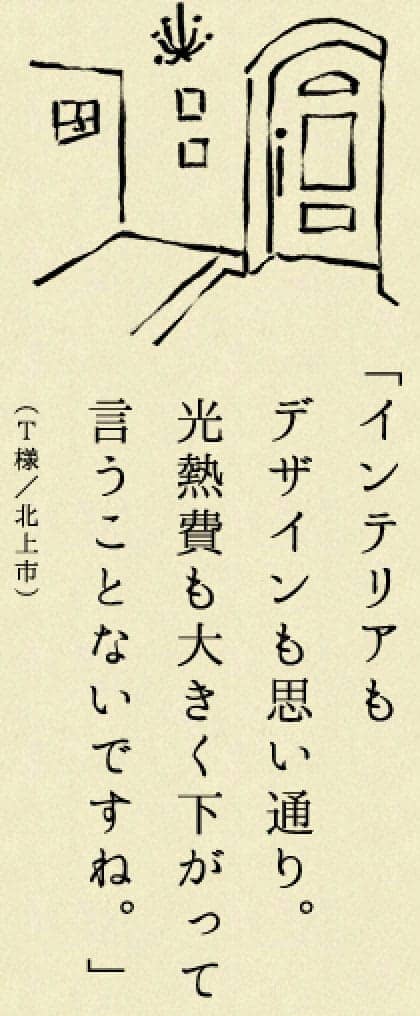 「インテリアも
デザインも思い通り。
光熱費も大きく下がって
言うことないですね。」
（T様／北上市）